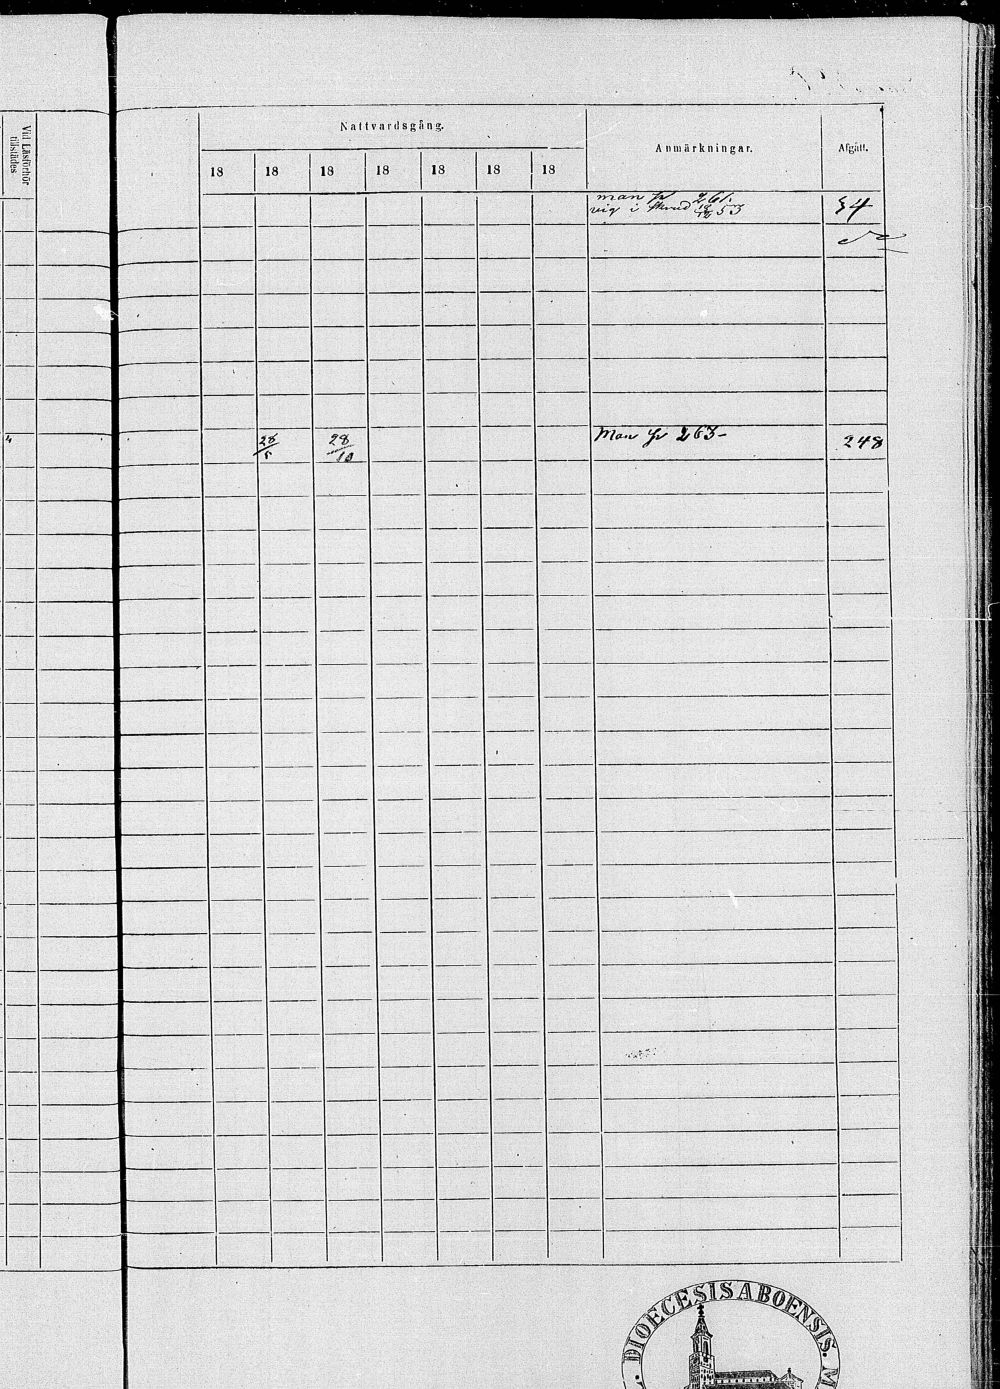 Vid Läsförhör
tillstädes
Nattvardsgång.
Anmärkningar.
Afgått.
18 18 18 18 18 18 18
man 261.
vig i 53
54
28/5 28/10 Man 263- 248
DIOECESIS ABOENSIS. M